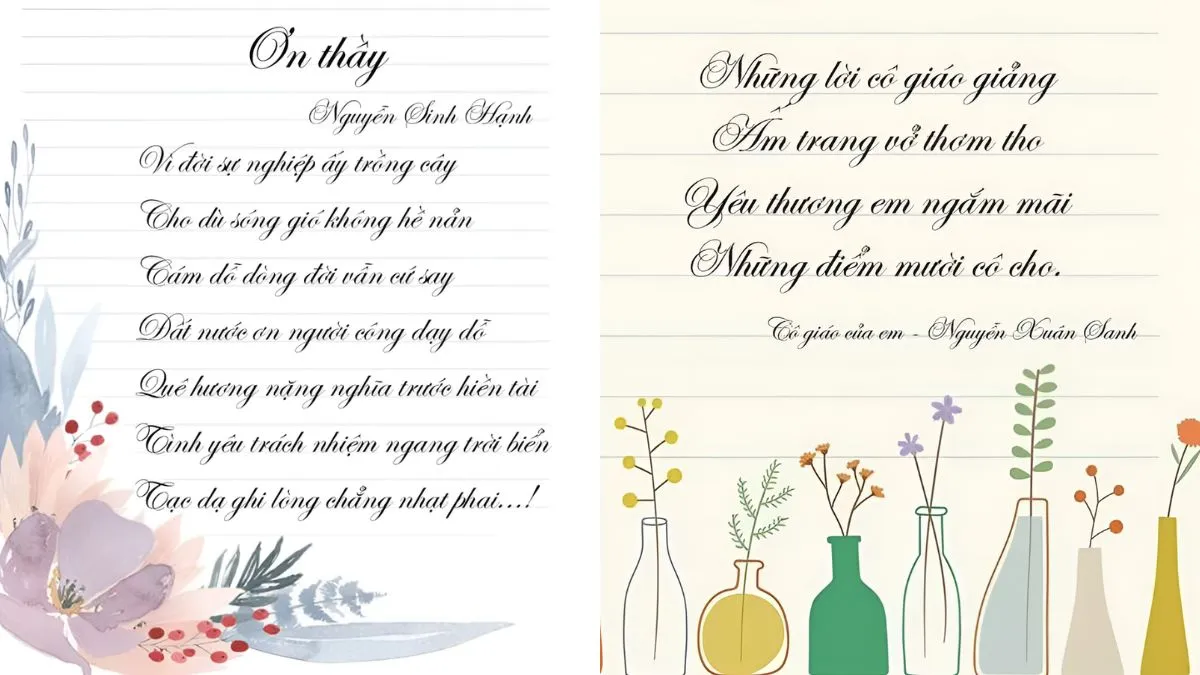 Ơn thầy
Nguyễn Sinh Hạnh
Vì đời sự nghiệp ấy trồng cây
Cho dù sóng gió không hề nản
Cám dỗ dòng đời vẫn cứ say
Đất nước ơn người cóng dạy dỗ
Quê hương nặng nghĩa trước hiền tài
Tình yêu trách nhiệm ngang trời biển
Tạc dạ ghi lòng chẳng nhạt phai...!
Những lời cô giáo giảng
Ấm trang vở thơm tho
Yêu thương em ngắm mãi
Những điểm mười cô cho.
Cô giáo của em - Nguyễn Xuân Sanh